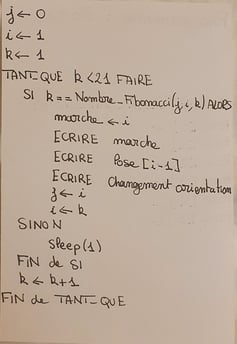 j ← 0
i ← 1
k ← 1
TANT_QUE k < 21 FAIRE
SI k == Nombre_Fibonacci(j, i, k) ALORS
marche ← i
ECRIRE marche
ECRIRE Pose [i-1]
ECRIRE Changement orientation
j ← i
i ← k
SINON
Sleep(1)
FIN de SI
k ← k+1
FIN de TANT_QUE